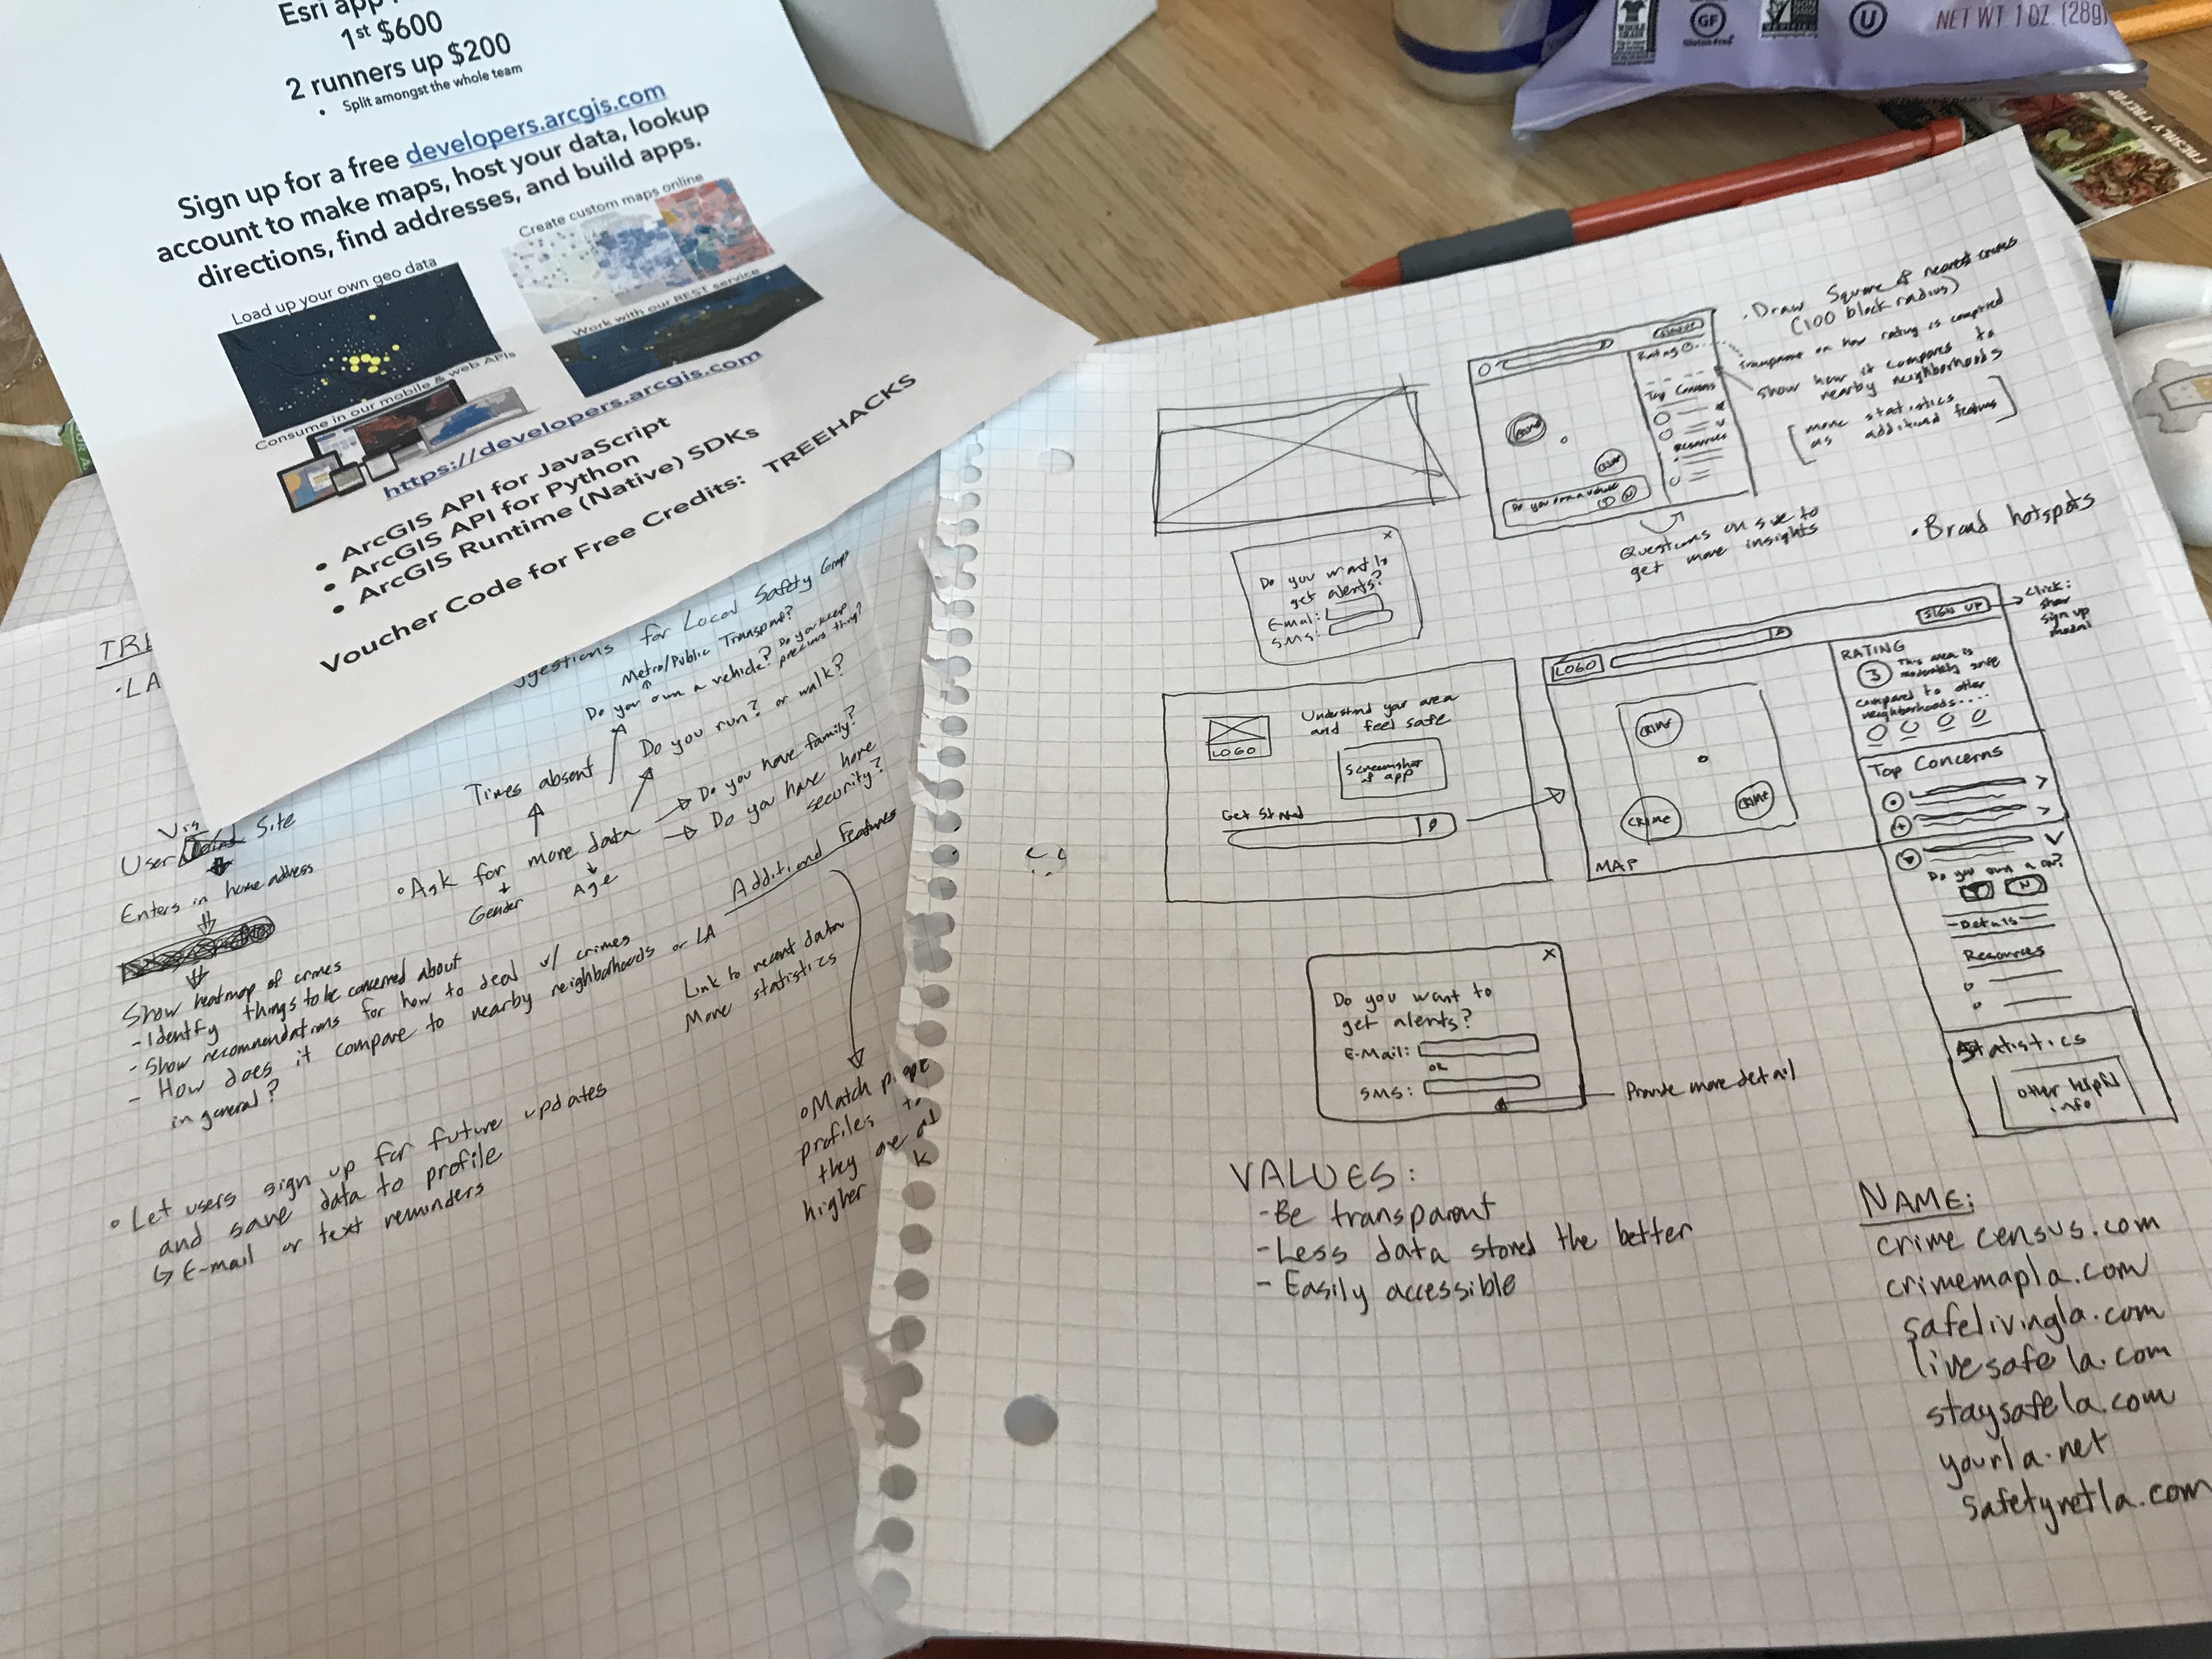 Esri app
1st $600
2 runners up $200
• Split amongst the whole team
Sign up for a free developers.arcgis.com
account to make maps, host your data, lookup
directions, find addresses, and build apps.
Load up your own geo data
Create custom maps online
Consume in our mobile & web APIs
Work with our REST service
https://developers.arcgis.com
• ArcGIS API for JavaScript
• ArcGIS API for Python
• ArcGIS Runtime (Native) SDKs
Voucher Code for Free Credits: TREEHACKS
GF
Gluten-Free
U
NET WT 1 OZ (28g)
• LA
for Local Safety Group
Metro/Public Transport?
Do you own a vehicle? Do you keep
precious things?
Times absent
Do you run? or walk?
• Ask for more data
Do you have family?
Do you have home
security?
Gender
Age
Vis
User Site
Enters in home address
Show heatmap of crimes
- Identify things to be concerned about
- Show recommendations for how to deal w/ crimes
- How does it compare to nearby neighborhoods or LA
in general?
Additional Features
Link to recent data
More statistics
• Match
profiles to
they are at
higher
• Let users sign up for future updates
and save data to profile
↳ E-mail or text reminders
• Draw Square of nearest crimes
(100 block radius)
Transparent on how rating is comprised
Show how it compares to
nearby neighborhoods
[more statistics
as additional features]
Rating
Top Concerns
Resources
Questions on size to
get more insights
• Broad hotspots
Do you want to
get alerts?
E-mail:
SMS:
x
LOGO
Understand your area
and feel safe
Screenshot
of app
Get Started
LOGO
SIGN UP
Click:
show
sign up
modal
CRIME
CRIME
CRIME
MAP
RATING
3
This area is
moderately safe
compared to other
neighborhoods...
Top Concerns
Do you own a
N
- Details -
Resources
Statistics
other helpful
info
x
Do you want to
get alerts?
E-Mail:
OR
SMS:
Provide more detail
VALUES:
- Be transparent
- Less data stored the better
- Easily accessible
NAME:
crimecensus.com
crimemapla.com
safelivingla.com
livesafela.com
staysafela.com
yourla.net
safetynetla.com